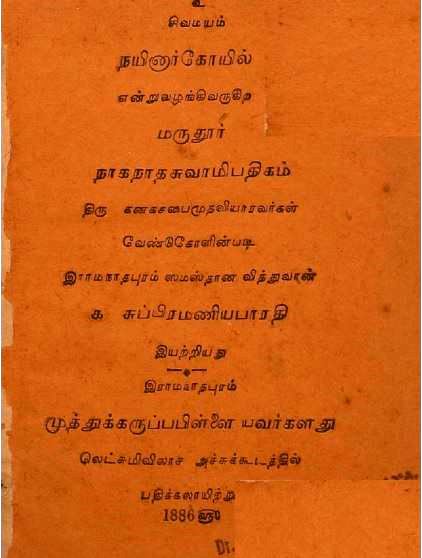 உ
சிவமயம்
நயினார்கோயில்
என்றுவழங்கிவருகிற
மருதூர்
நாகநாதசுவாமிபதிகம்
திரு கனகசபைமுதலியாரவர்கள்
வேண்டுகோளின்படி
இராமநாதபுரம் ஸமஸ்தான வித்துவான்
க சுப்பிரமணியபாரதி
இயற்றியது
இராமநாதபுரம்
முத்துக்கருப்பபிள்ளை யவர்களது
லெட்சுமிவிலாச அச்சுக்கூடத்தில்
பதிக்கலாயிற்று
1886௵
Dt.